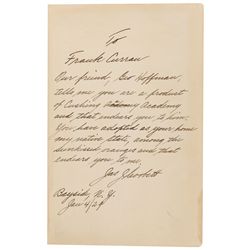 To
Frank Curran
Our friend, Geo Hoffman,
tells me you are a product
of Cushing Academy
and that endears you to him.
You have adopted as your home
my native State, among the
sunkissed oranges and that
endears you to me.
Jas J Corbett
Bayside, N.Y.
Jan 4/29